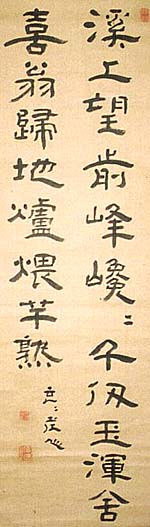 溪上望前峰巉〻千仞玉渾舍
喜翁歸地爐煨芋熟